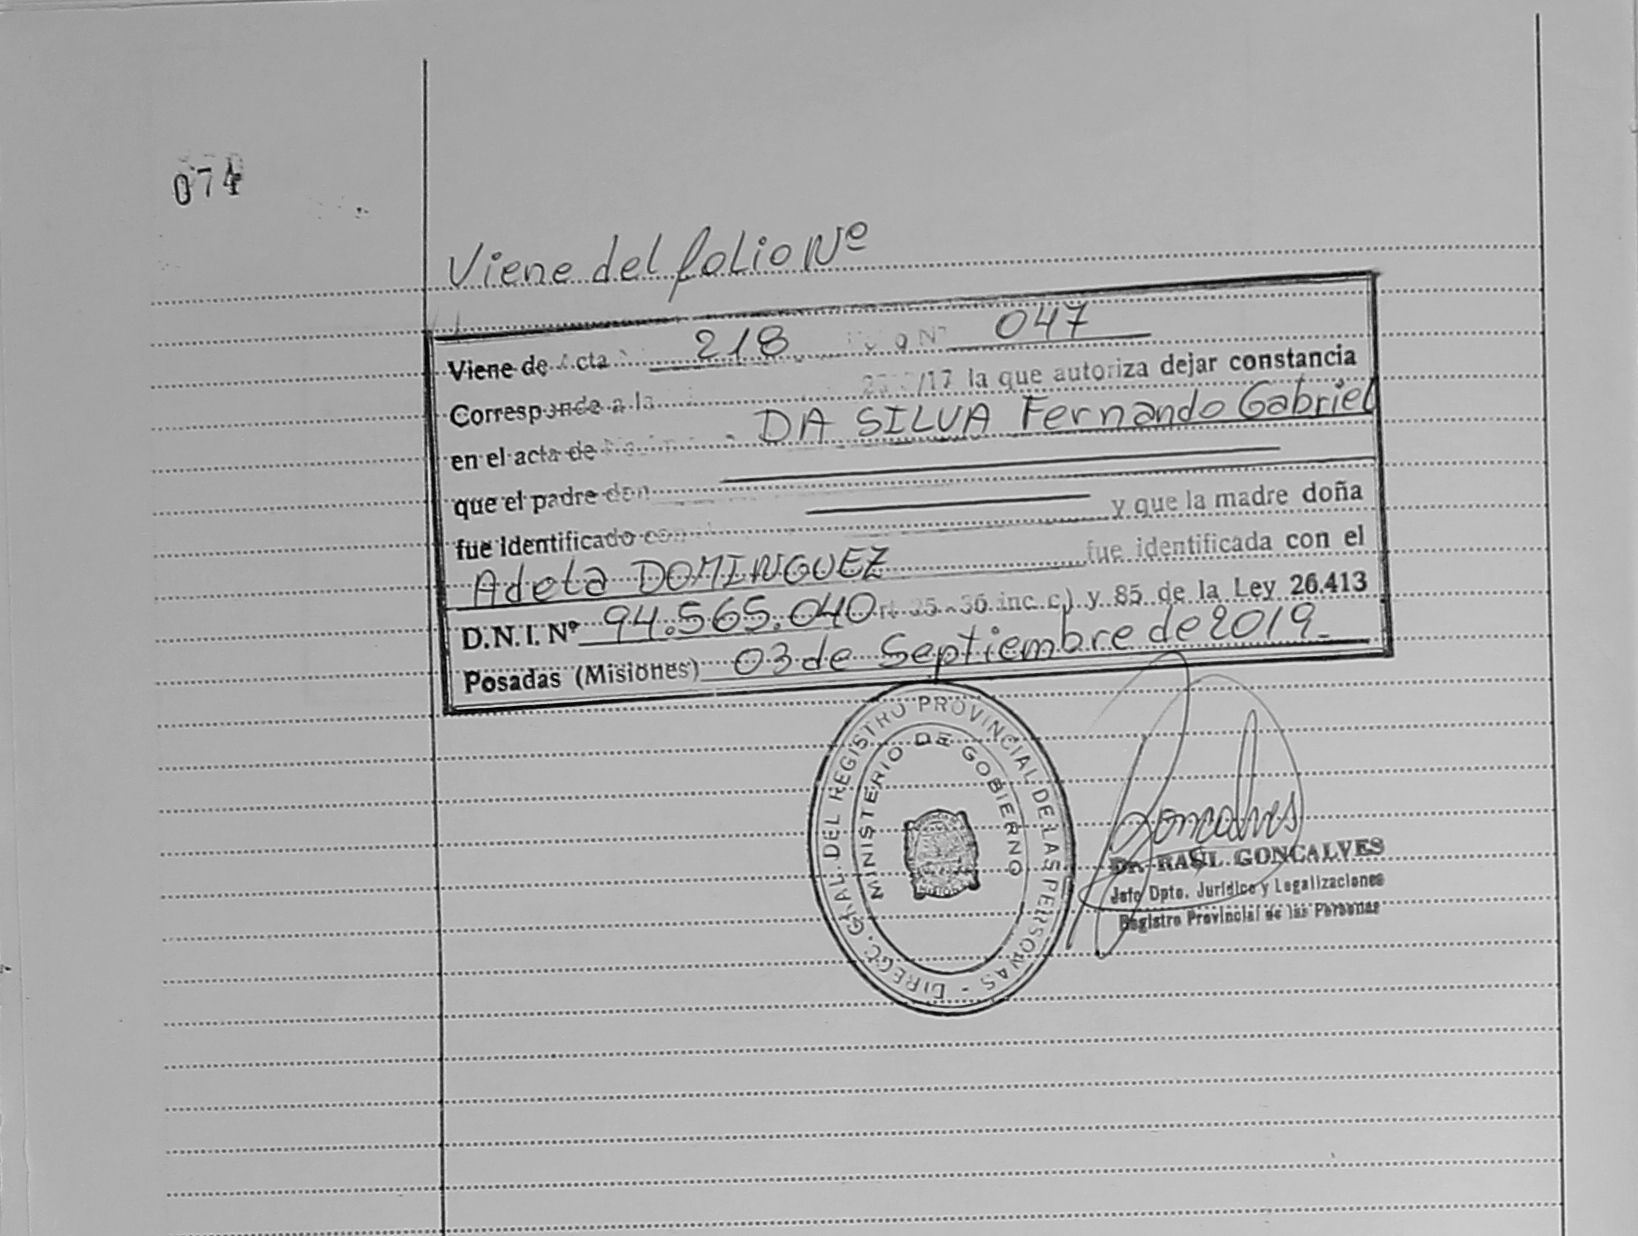 074
Viene del folio Nº
Viene de Acta 218 Nº 047
Corresponde a la /17 la que autoriza dejar constancia
en el acta de DA SILVA Fernando Gabriel
que el padre don
fue identificado con y que la madre doña
Adela DOMINGUEZ fue identificada con el
D.N.I. Nº 94.565.040 inc. c) y 85 de la Ley 26.413
Posadas (Misiones) 03 de Septiembre de 2019
DIRECC. GRAL. DEL REGISTRO PROVINCIAL DE LAS PERSONAS -
MINISTERIO DE GOBIERNO
Goncalves
Dr. RAUL GONCALVES
Jefe Dpto. Jurídico y Legalizaciones
Registro Provincial de las Personas